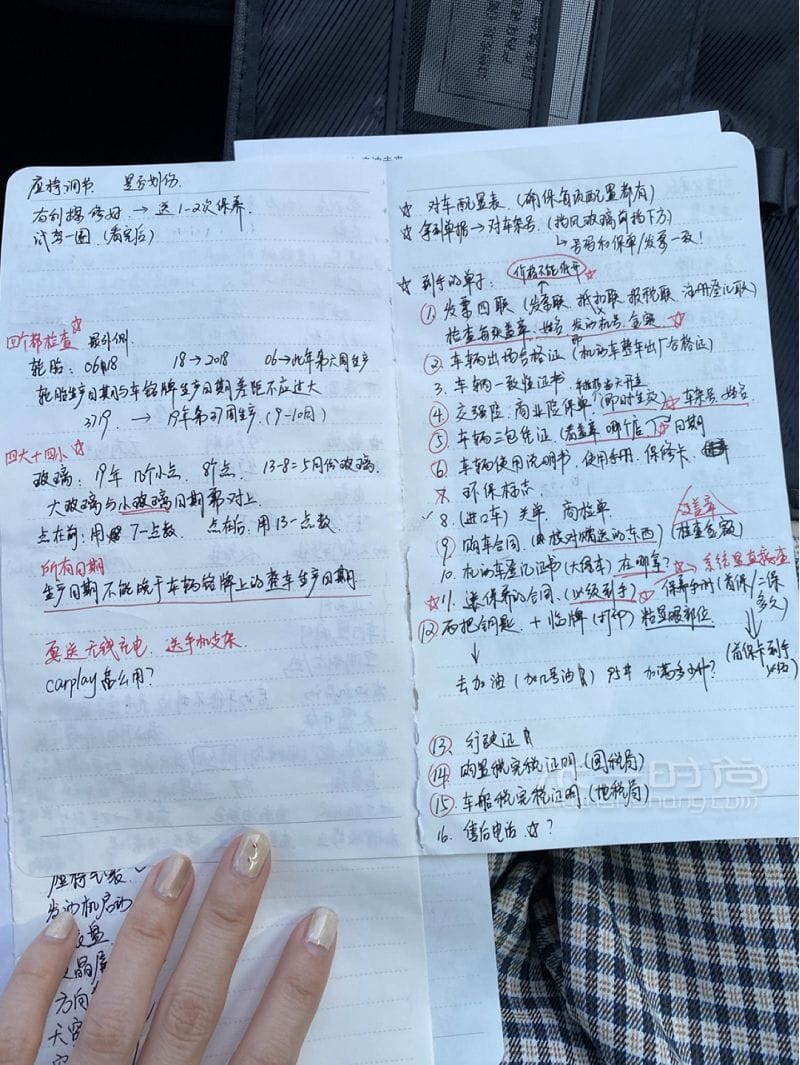 座椅调节 是否划伤
右刮擦修好 → 送1-2次保养
试驾一圈 (看完后)
四个都检查☆
轮胎: 0618 18→2018 06→此年第六周生产
轮胎生产日期与车铭牌生产日期差距不应过大
3719 → 19年第37周生产 (9-10月)
四大十四小☆
玻璃: 19年 8个点 13-8=5月份玻璃
大玻璃与小玻璃日期需对上
点在前: 用7-点数 点在后: 用13-点数
所有日期
生产日期不能晚于车辆铭牌上的整车生产日期
要送无线充电 送手机支架
carplay怎么用?
☆ 对车配置表 (确保每项配置都有)
☆ 拿到单据→对车架号 (挡风玻璃前挡下方)
↳ 号码和保单/发票一致!
☆ 到手的单子: 价格不能低开 ☆
① 发票四联 (发票联 抵扣联 报税联 注册登记联)
检查每张盖章 姓名 发动机号 金额 ☆
② 车辆出场合格证 (机动车整车出厂合格证)
3. 车辆一致性证书
④ 交强险 商业险保单 (即时生效) ☆ 车架号 姓名
⑤ 车辆三包凭证 (看盖章 哪个店) 日期
⑥ 车辆使用说明书 使用手册 保修卡
7. 环保标志
✓ 8. (进口车) 关单 商检单
(9) 购车合同 (核对赠送的东西) (检查金额) 没盖章
10. 机动车登记证书 (大绿本) 在哪拿? ☆
☆ 11. 送保养的合同 (必须到手) ☆ 保养手册 (首保/二保 多久)
⑫ 两把钥匙 + 临牌 (打印) 粘显眼部位
(首保卡到手
↓
去加油 (加几号油) 95# 加满多少升?
⑬ 行驶证
⑭ 购置税完税证明 (国税局)
⑮ 车船税完税证明 (地税局)
16. 售后电话 ☆?
座椅包裹
发动机启动
液晶屏
方向
天窗